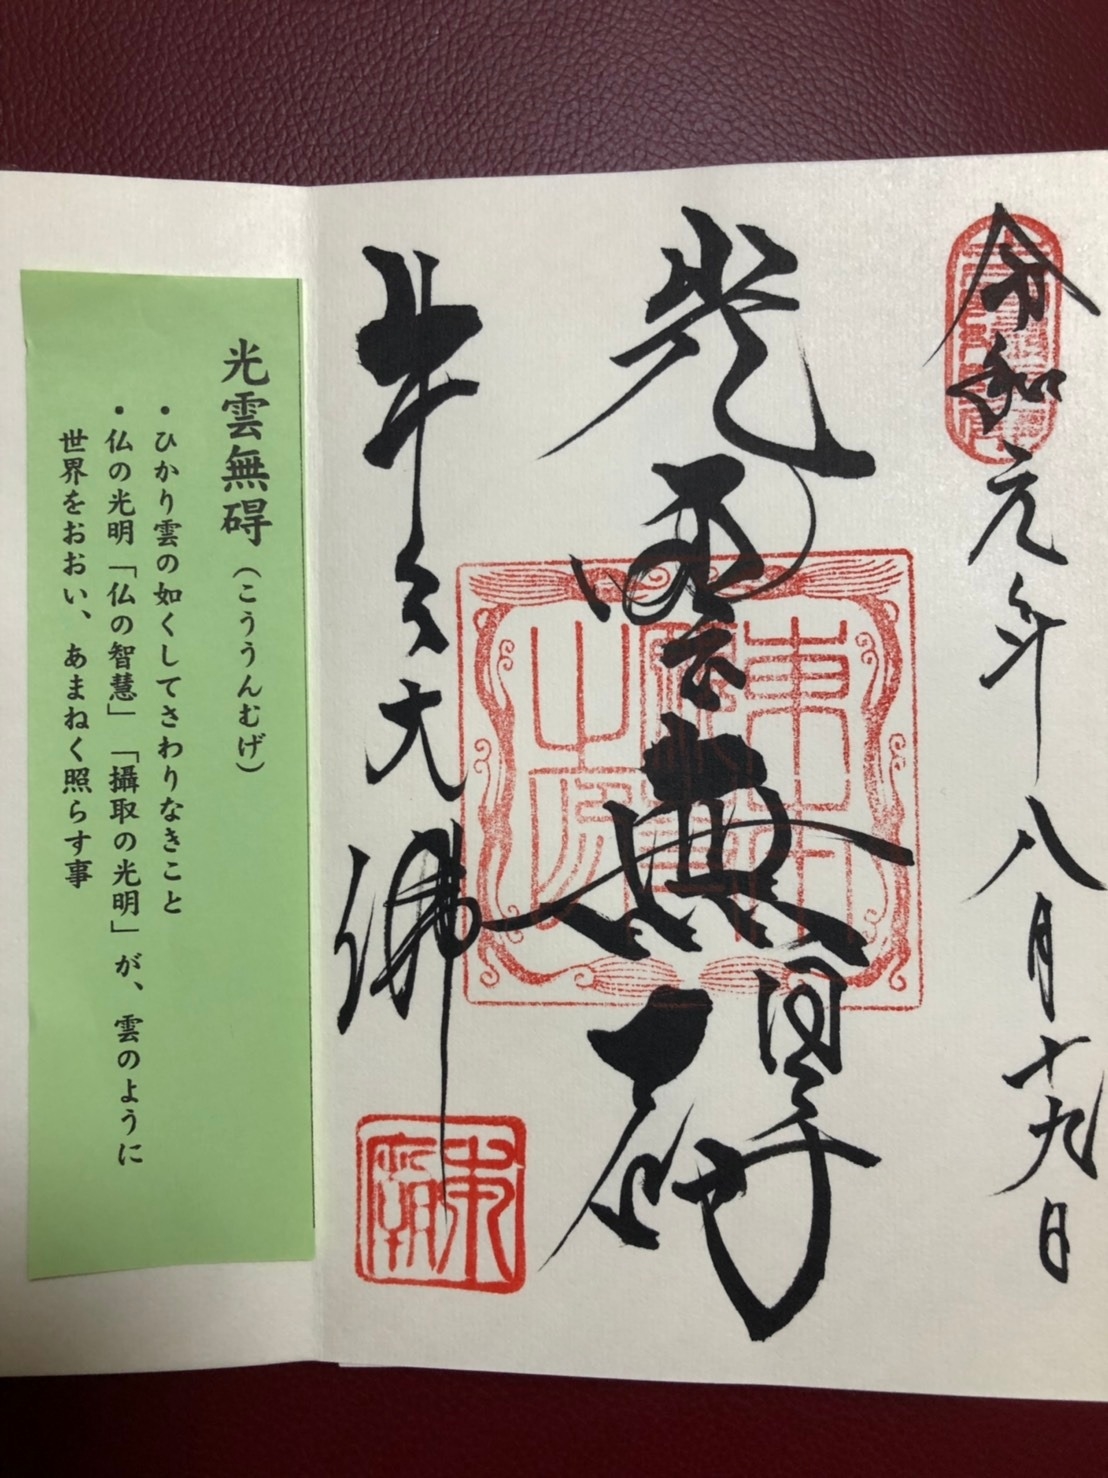 令和元年八月十九日
光雲無碍
牛久大佛
光雲無碍（こううんむげ）
・ひかり雲の如くしてさわりなきこと
・仏の光明「仏の智慧」「攝取の光明」が、雲のように
世界をおおい、あまねく照らす事